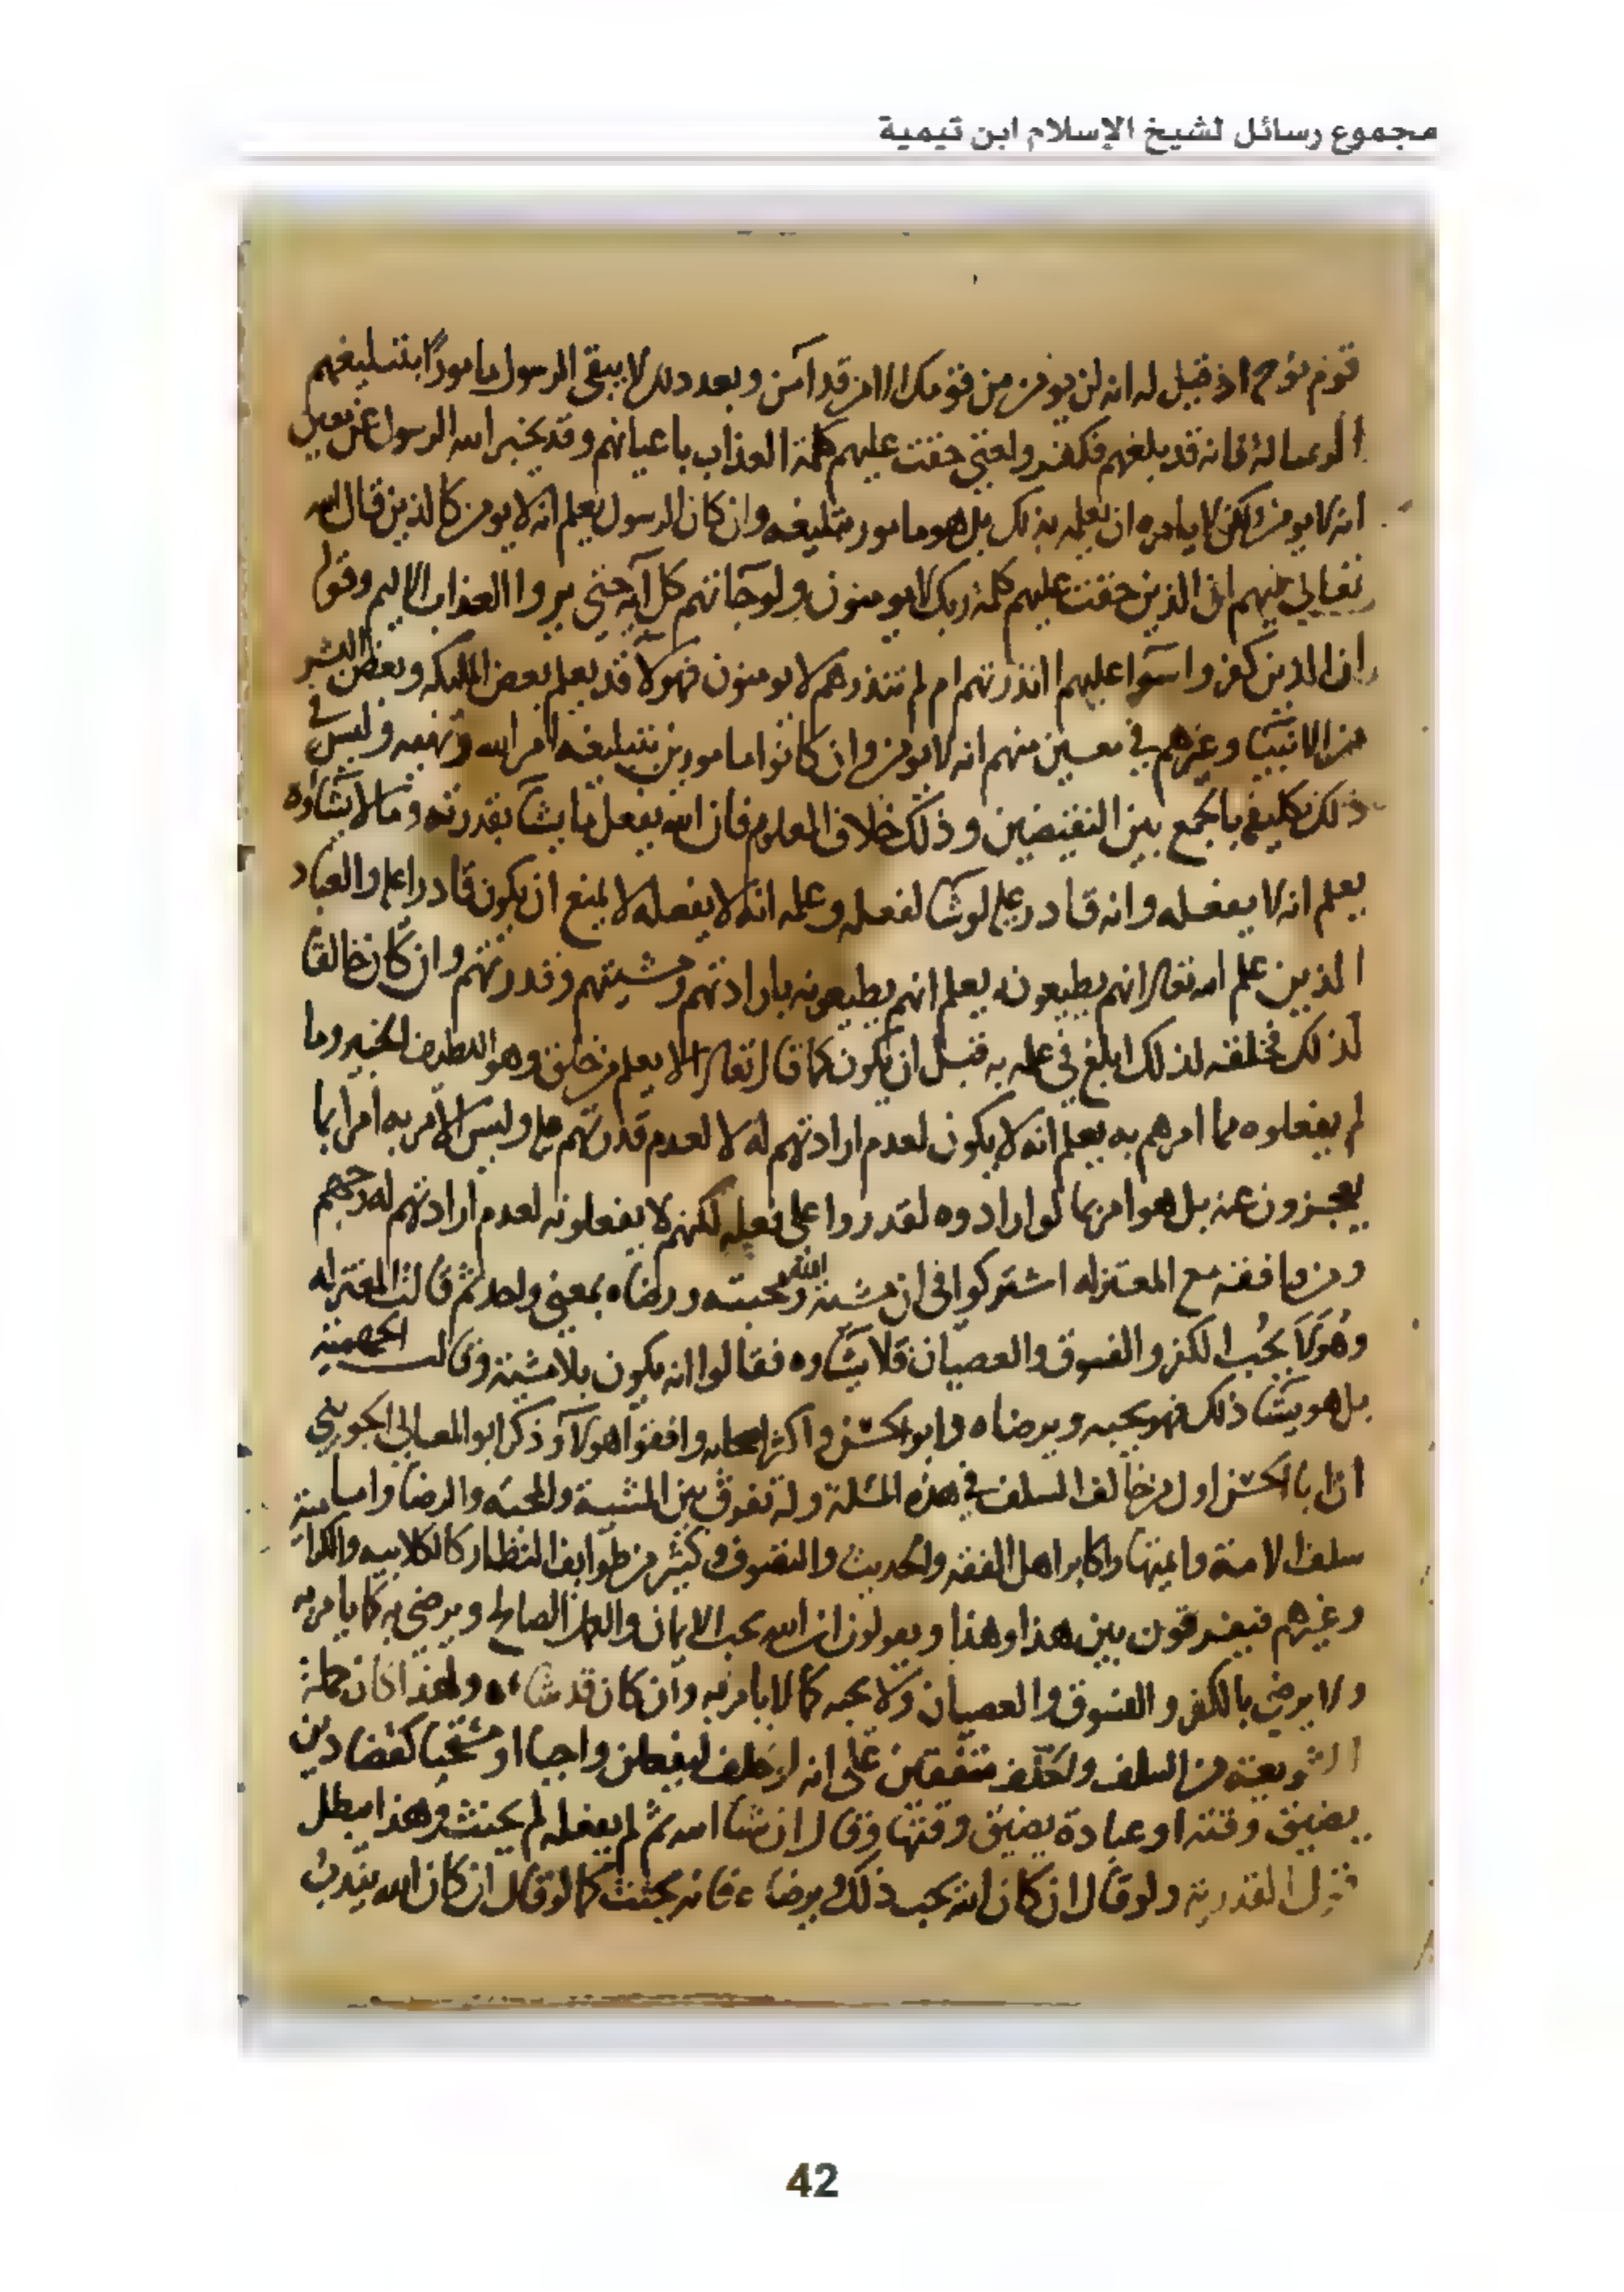 مجموع رسائل لشيخ الإسلام ابن تيمية
قوم نوح اذ قيل له انه لن يومن من قومك الا من قد آمن وبعد ذلك لا يبقى الرسول مامورًا بتبليغهم
الرسالة فانه قد بلغهم فكفروا حتى حقت عليهم كلمة العذاب باعيانهم وقد يخبر الله الرسول عن معين
انه لا يومن لكن لا يامره ان يعلمه بذلك بل هو مامور بتبليغه وان كان الرسول يعلم انه لا يومن كالذين قال الله
تعالى فيهم ان الذين حقت عليهم كلمة ربك لا يومنون ولو جاتهم كل آية حتى يروا العذاب الاليم وقوله
ان الذين كفروا سوآ عليهم اانذرتهم ام لم تنذرهم لا يومنون فهولآ قد يعلم بعض المليكه وبعض البشر
من الانبيا وغيرهم في معين منهم انه لا يومن وان كانوا مامورين بتبليغه امر الله ونهيه وليس في
ذلك تكليفه بالجمع بين النقيضين وذلك خلاف المعلوم فان الله يفعل ما يشآ بقدرته وما لا يشآوه
يعلم انه لا يفعله وانه قادر عليه لو شآ لفعله وعلمه انه لا يفعله لا يمنع ان يكون قادرا عليه والعباد
الذين علم الله تعالى انهم يطيعونه يعلم انهم يطيعونه بارادتهم ومشيتهم وقدرتهم وان كان خالقا
لذلك فخلقه لذلك ابلغ في علمه به قبل ان يكون كما قال تعالى الا يعلم من خلق وهو اللطيف الخبير وما
لم يفعلوه مما امرهم به يعلم انه لا يكون لعدم ارادتهم له لا لعدم قدرتهم عليه وليس الامر به امرا بما
يعجزون عنه بل هو امر بما لو ارادوه لقدروا على فعله لكنهم لا يفعلونه لعدم ارادتهم له وجهم
ومن وافقه مع المعتزله اشتركوا في ان مشيئة الله ومحبته ورضاه بمعنى واحد ثم قالت المعتزله
وهو لا يحب الكفر والفسوق والعصيان فلا يشآوه فقالوا انه يكون بلا مشيئة وقالت الجهمية
بل هو يشآ ذلك فهو يحبه ويرضاه وابو الحسن واكثر اصحابه وافقوا هولآ وذكر ابو المعالي الجويني
ان ابا الحسن اول من خالف السلف في هذه المسئلة ولم يفرق بين المشية والمحبة والرضا واما
سلف الامة وايمتها واكابر اهل الفقه والحديث والتصوف وكثير من طوايف النظار كالكلابيه والكرا
وغيرهم فيفرقون بين هذا وهذا ويقولون ان الله يحب الايمان والعمل الصالح ويرضى به كما يامر به
ولا يرضى بالكفر والفسوق والعصيان ولا يحبه كما لا يامر به وان كان قد شاءه ولهذا كان حملة
الشريعة من السلف والخلف متفقين على انه لو حلف ليفعلن واجبا او مستحبا كقضا دين
يضيق وقته او عبادة يضيق وقتها وقال ان شا الله ثم لم يفعله لم يحنث وهذا يبطل
قول القدرية ولو قال ان كان الله يحب ذلك ويرضاه فانه يحنث كما لو قال ان كان الله يندب
42